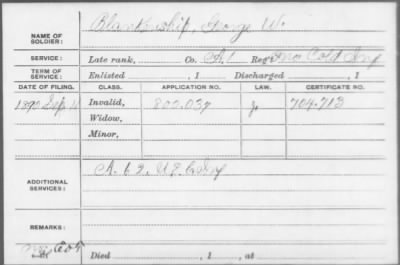 NAME OF SOLDIER: Blankenship, George W.
SERVICE: Late rank, Co. A, 1 Reg't Col'd Inf
TERM OF SERVICE: Enlisted , 1 Discharged , 1
DATE OF FILING. CLASS. APPLICATION NO. LAW. CERTIFICATE NO.
1890 Sep 11 Invalid, 802.037 704.713
Widow,
Minor,
ADDITIONAL SERVICES: A. 62 U.S.C. Inf
REMARKS:
Died , 1 , at